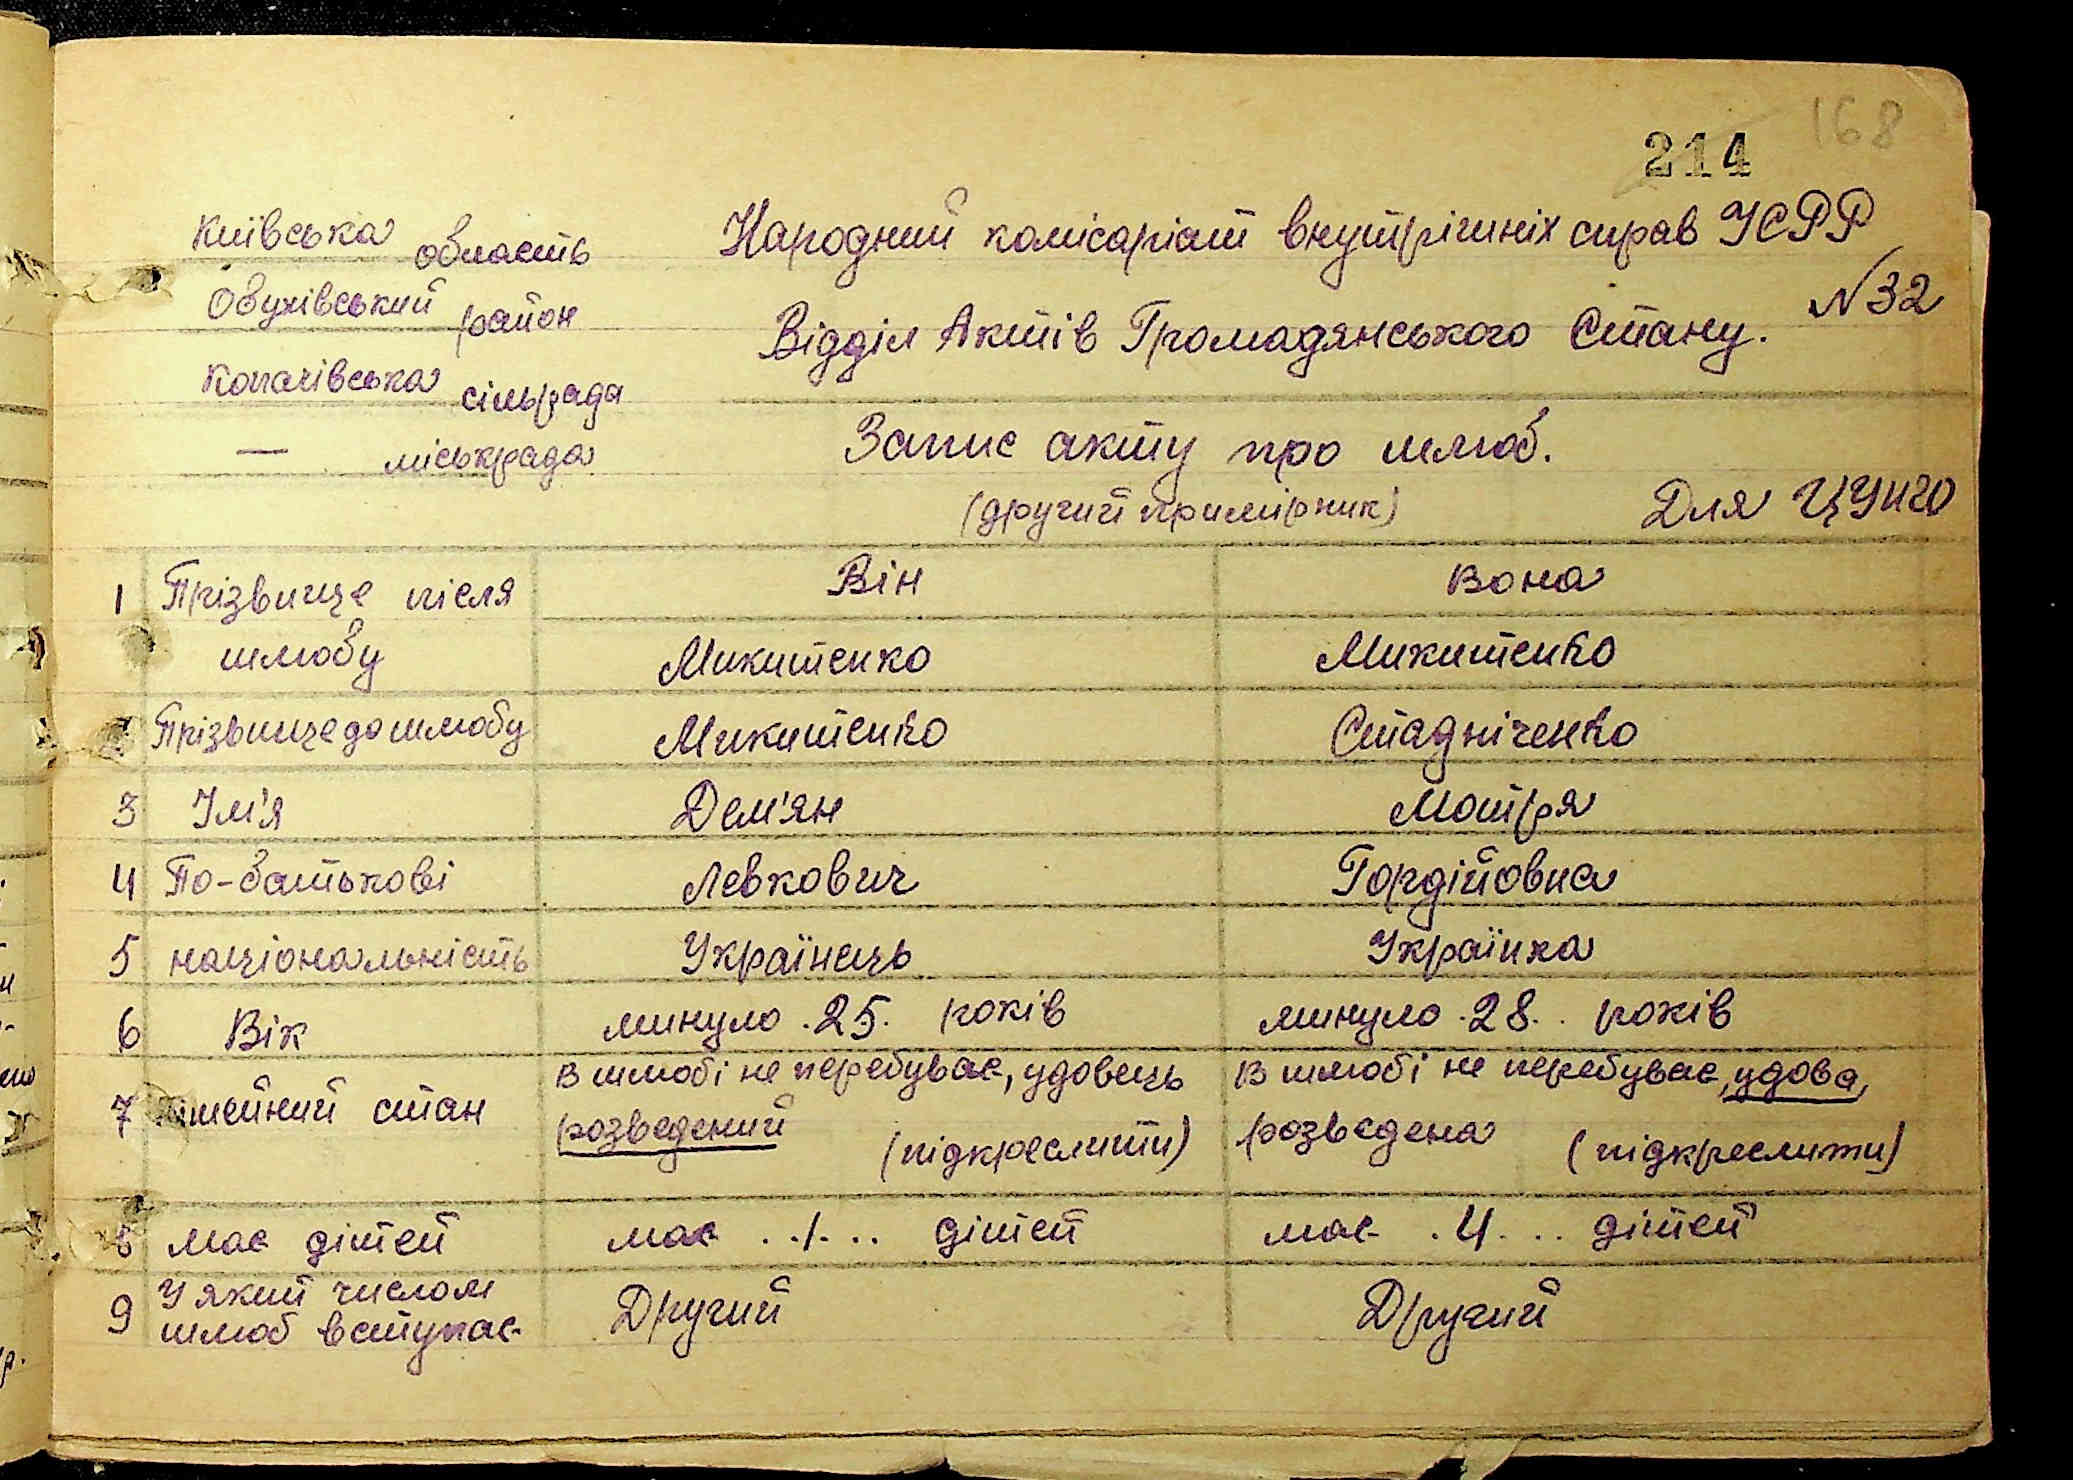 168
214
Київська область
Обухівський район
Копачівська сільрада
— міськрада
Народний комісаріят внутрішніх справ УСРР
№32
Відділ Актів Громадянського Стану.
Запис акту про шлюб.
(другий примірник)
Для ЦУНГО
1 Прізвище після шлюбу
Він
Вона
Микитенко
Микитенко
Прізвище до шлюбу
Микитенко
Стадніченко
3 Ім'я
Дем'ян
Мотря
4 По-батькові
Левкович
Гордійовна
5 національність
Українець
Українка
6 Вік
минуло .25. років
минуло .28. . років
7 стан
В шлюбі не перебуває, удовець
розведений (підкреслити)
В шлюбі не перебуває, удова,
розведена (підкреслити)
8 має дітей
має . .1. .. дітей
має . 4. .. дітей
9 У який числом
шлюб вступає
Другий
Другий